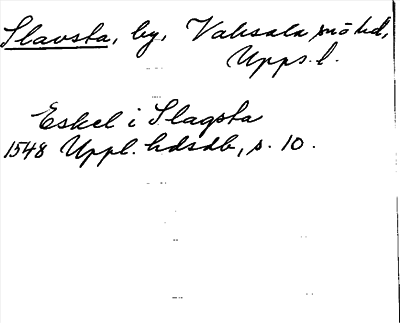 Slavsta, by, Vaksala snö hd,
Upps. l.
Eskel i Slagsta
1548 Uppl. hdsdb, s. 10.